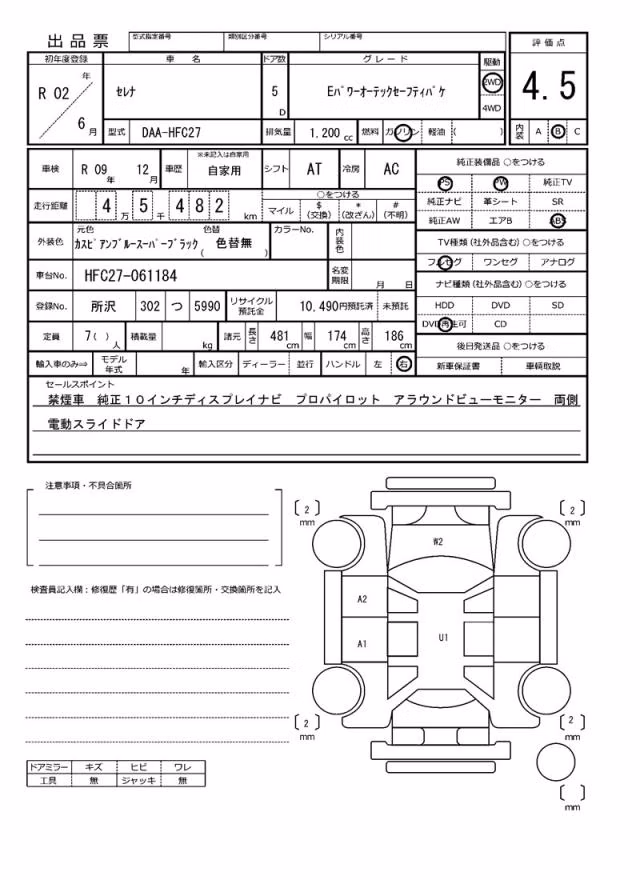 出品票 型式指定番号 類別区分番号 シリアル番号 評価点
初年度登録 車名 ドア数 グレード 駆動
R 02 年 6 月 セレナ 5 D Eパワーオーテックセーフティパケ 2WD 4WD 4.5
型式 DAA-HFC27 排気量 1.200 cc 燃料 ガソリン 軽油 ( ) 内装 A B C
車検 R 09 年 12 月 車歴 ※未記入は自家用 自家用 シフト AT 冷房 AC
走行距離 4 万 5 千 4 8 2 km ○をつける マイル $ (交換) * (改ざん) # (不明)
外装色 元色 カスピアンブルースーパーブラック 色替 ( 色替無 ) カラーNo. 内装色
車台No. HFC27-061184 名変期限 月 日
登録No. 所沢 302 つ 5990 リサイクル預託金 10.490円預託済 未預託
定員 7( ) 人 積載量 kg 諸元 長さ 481 cm 幅 174 cm 高さ 186 cm
輸入車のみ⇒ モデル年式 年 輸入区分 ディーラー 並行 ハンドル 左 右
純正装備品 ○をつける
PS PW 純正TV
純正ナビ 革シート SR
純正AW エアB ABS
TV種類(社外品含む)○をつける
フルセグ ワンセグ アナログ
ナビ種類(社外品含む)○をつける
HDD DVD SD
DVD再生可 CD
後日発送品 ○をつける
新車保証書 車輌取説
セールスポイント
禁煙車 純正10インチディスプレイナビ プロパイロット アラウンドビューモニター 両側
電動スライドドア
注意事項・不具合箇所
検査員記入欄:修復歴「有」の場合は修復箇所・交換箇所を記入
ドアミラー キズ ヒビ ワレ
工具 無 ジャッキ 無
[ 2 ] mm [ 2 ] mm
W2
A2
A1 U1
[ 2 ] mm [ 2 ] mm
[ ] mm